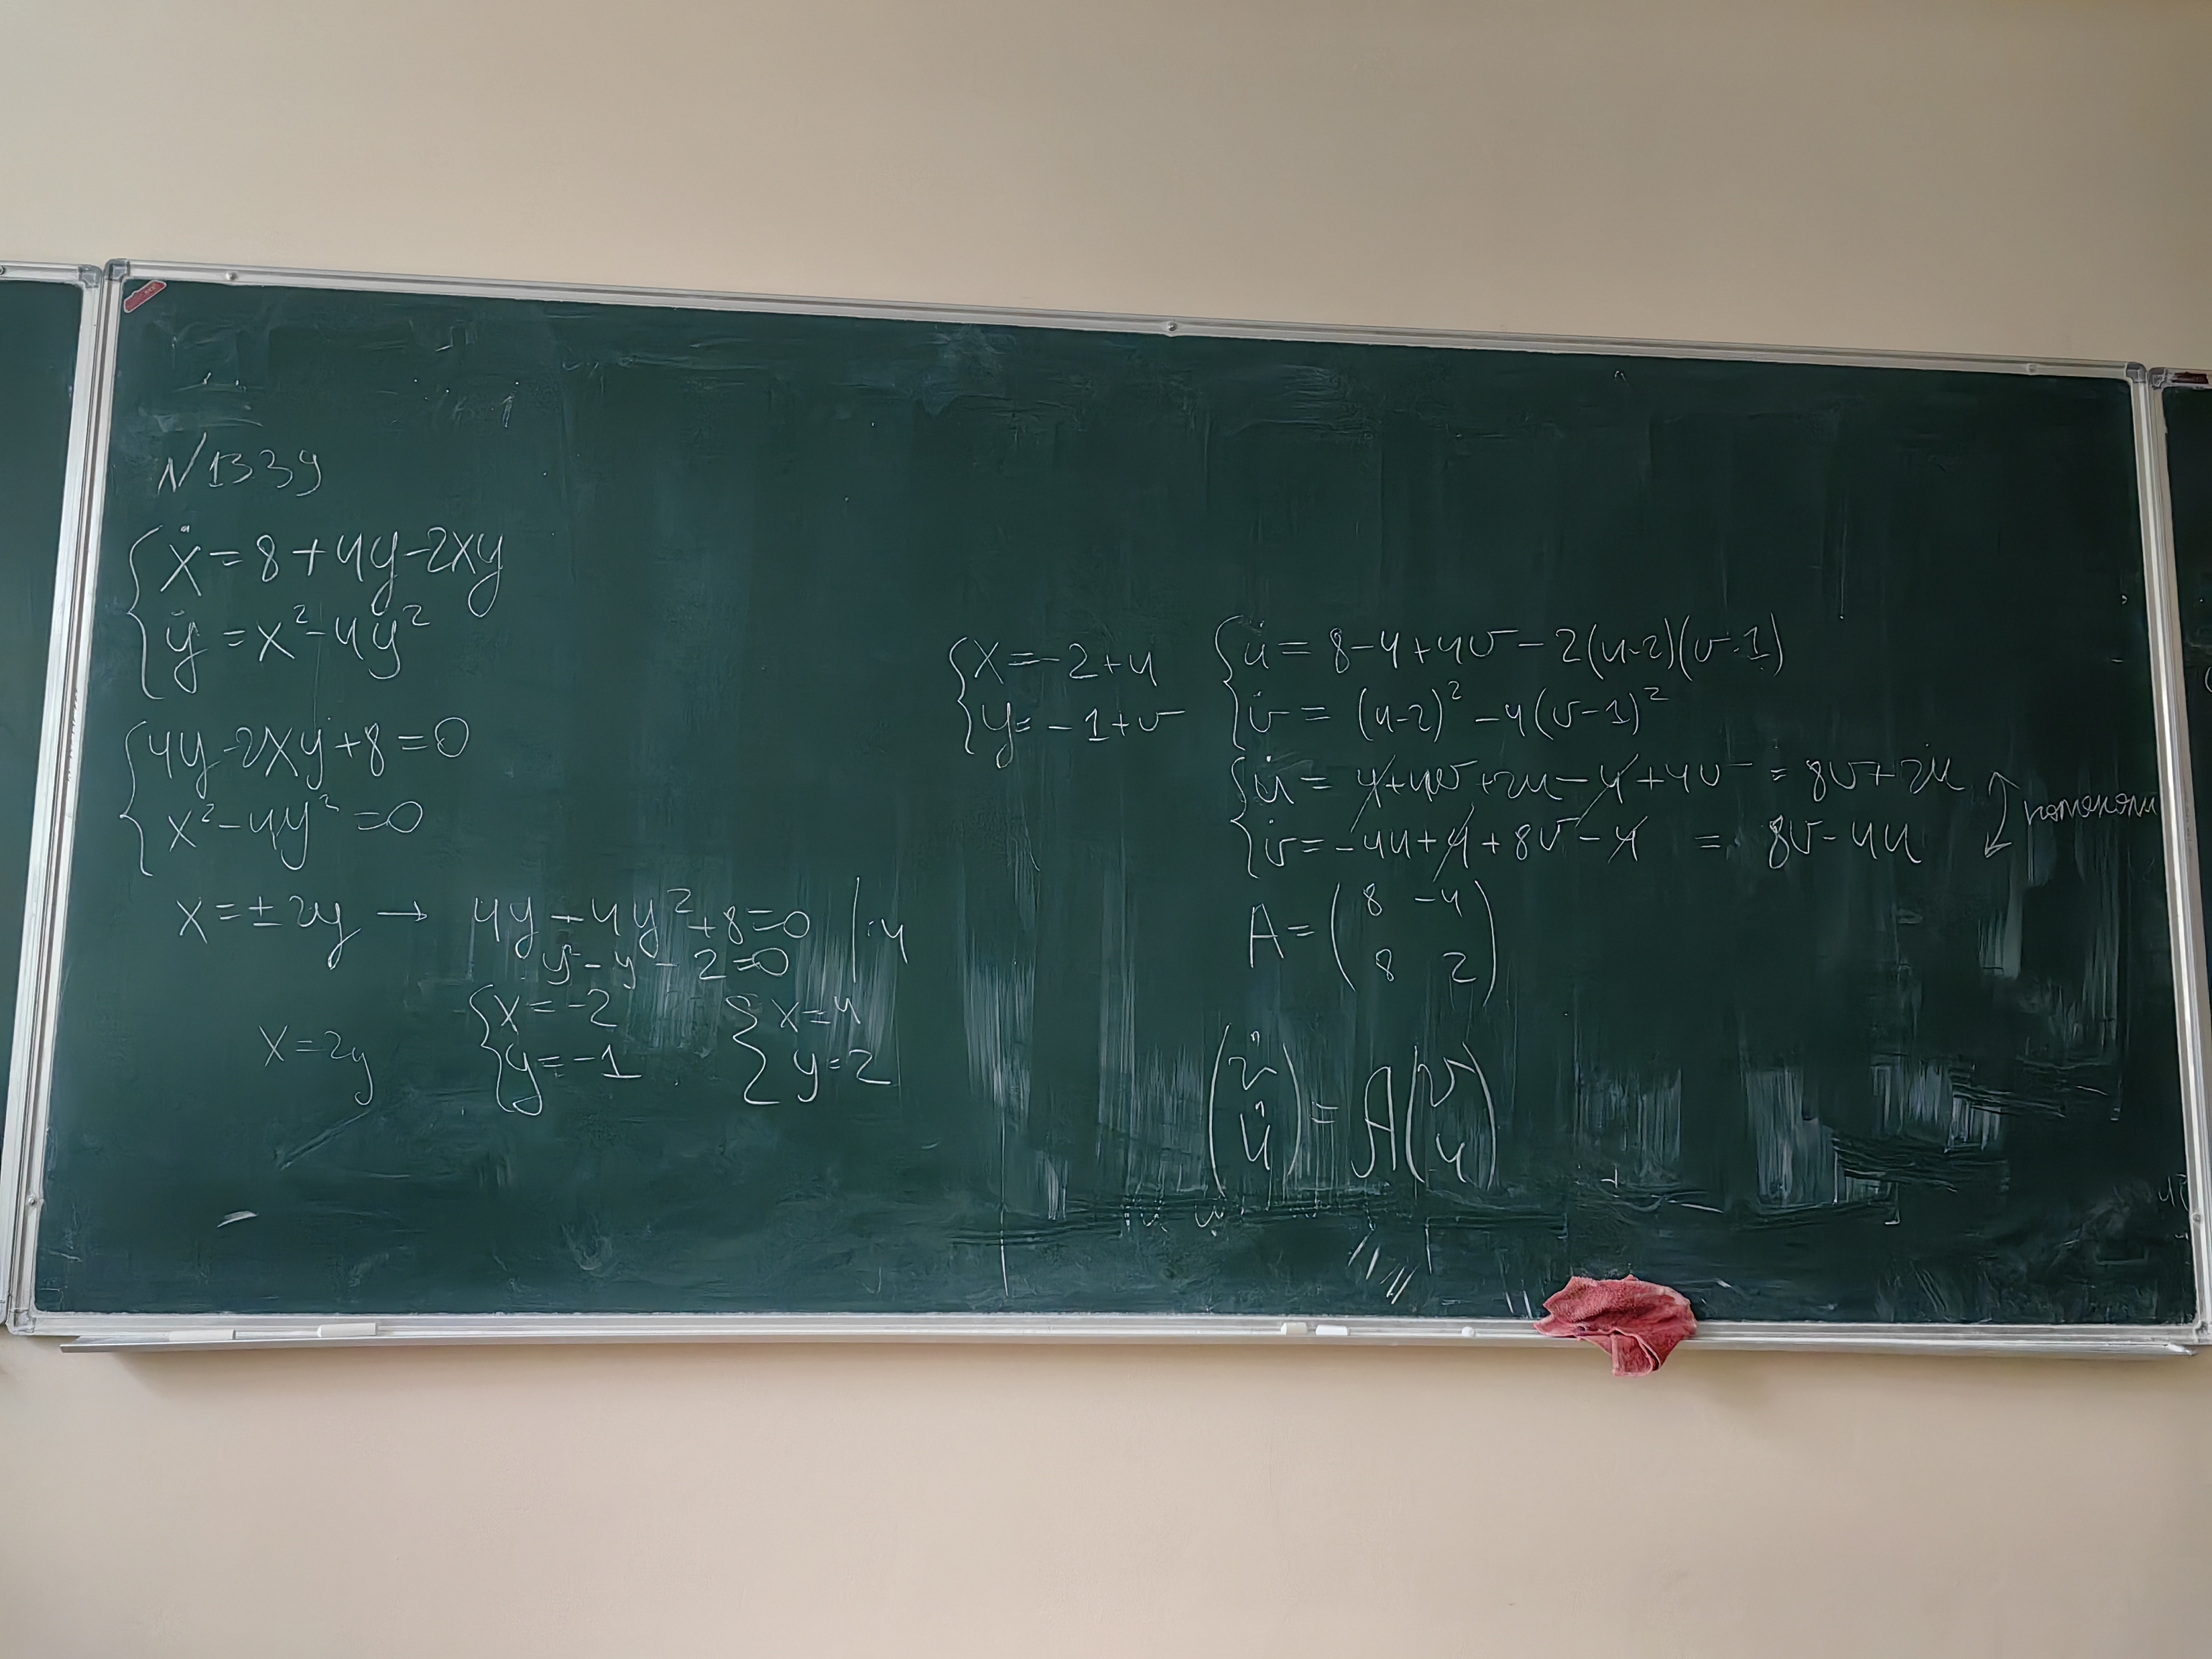 N1339
ẋ = 8 + 4y - 2xy
ẏ = x² - 4y²
4y - 2xy + 8 = 0
x² - 4y² = 0
x = ± 2y → 4y - 4y² + 8 = 0 | :4
y² - y - 2 = 0
x = 2y
{x = -2
y = -1
{x = 4
y = 2
{x = -2 + u
y = -1 + v
{u̇ = 8 - 4 + 4v - 2(u-2)(v-1)
v̇ = (u-2)² - 4(v-1)²
{u̇ = 4 + 4v + 2u - 4 + 4v = 8v + 2u
v̇ = -4u + 4 + 8v - 4 = 8v - 4u
A = (8 -4
8 2)
(v̇
u̇) = A (v
u)